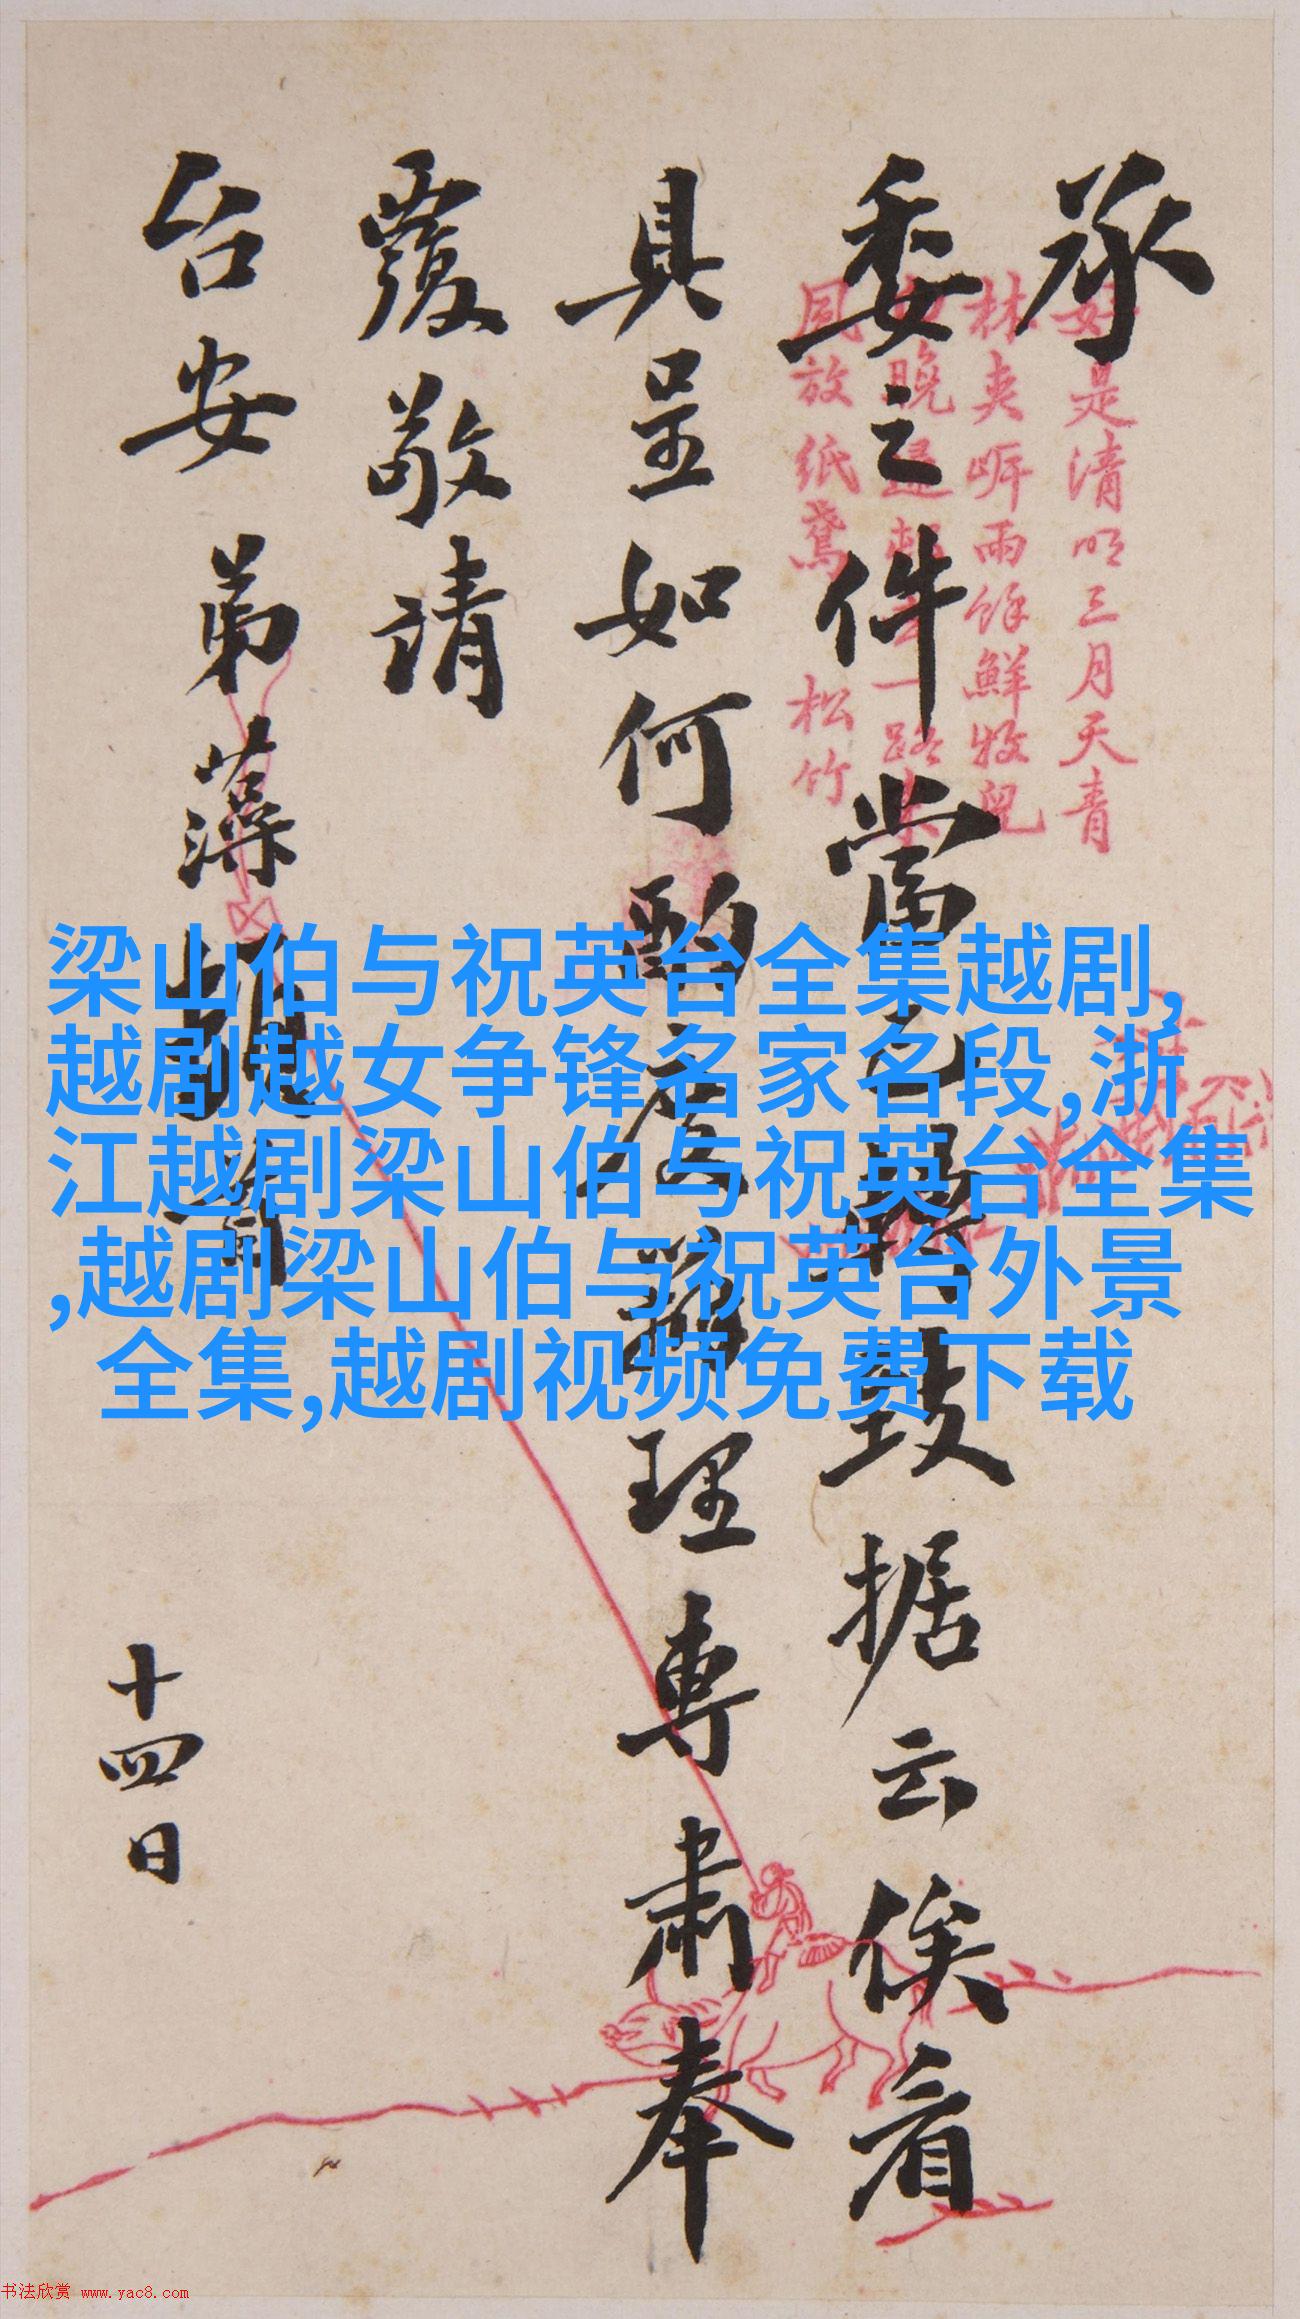 承
委之件當已致据云俟看
具呈如何酌度辦理專肅奉
覆敬請
台安 弟藻頓首
十四日
好是清明三月天青
林夾岸雨餘鮮牧兒
晚歸一路
風放紙鳶 松竹
梁山伯与祝英台全集越剧,
越剧越女争锋名家名段,浙
江越剧梁山伯与祝英台全集
,越剧梁山伯与祝英台外景
全集,越剧视频免费下载
书法欣赏 www.yac8.com